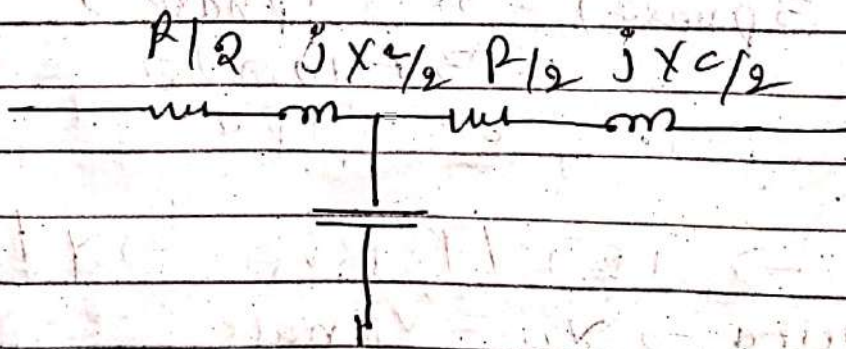 R/2 jXL/2 R/2 jXc/2